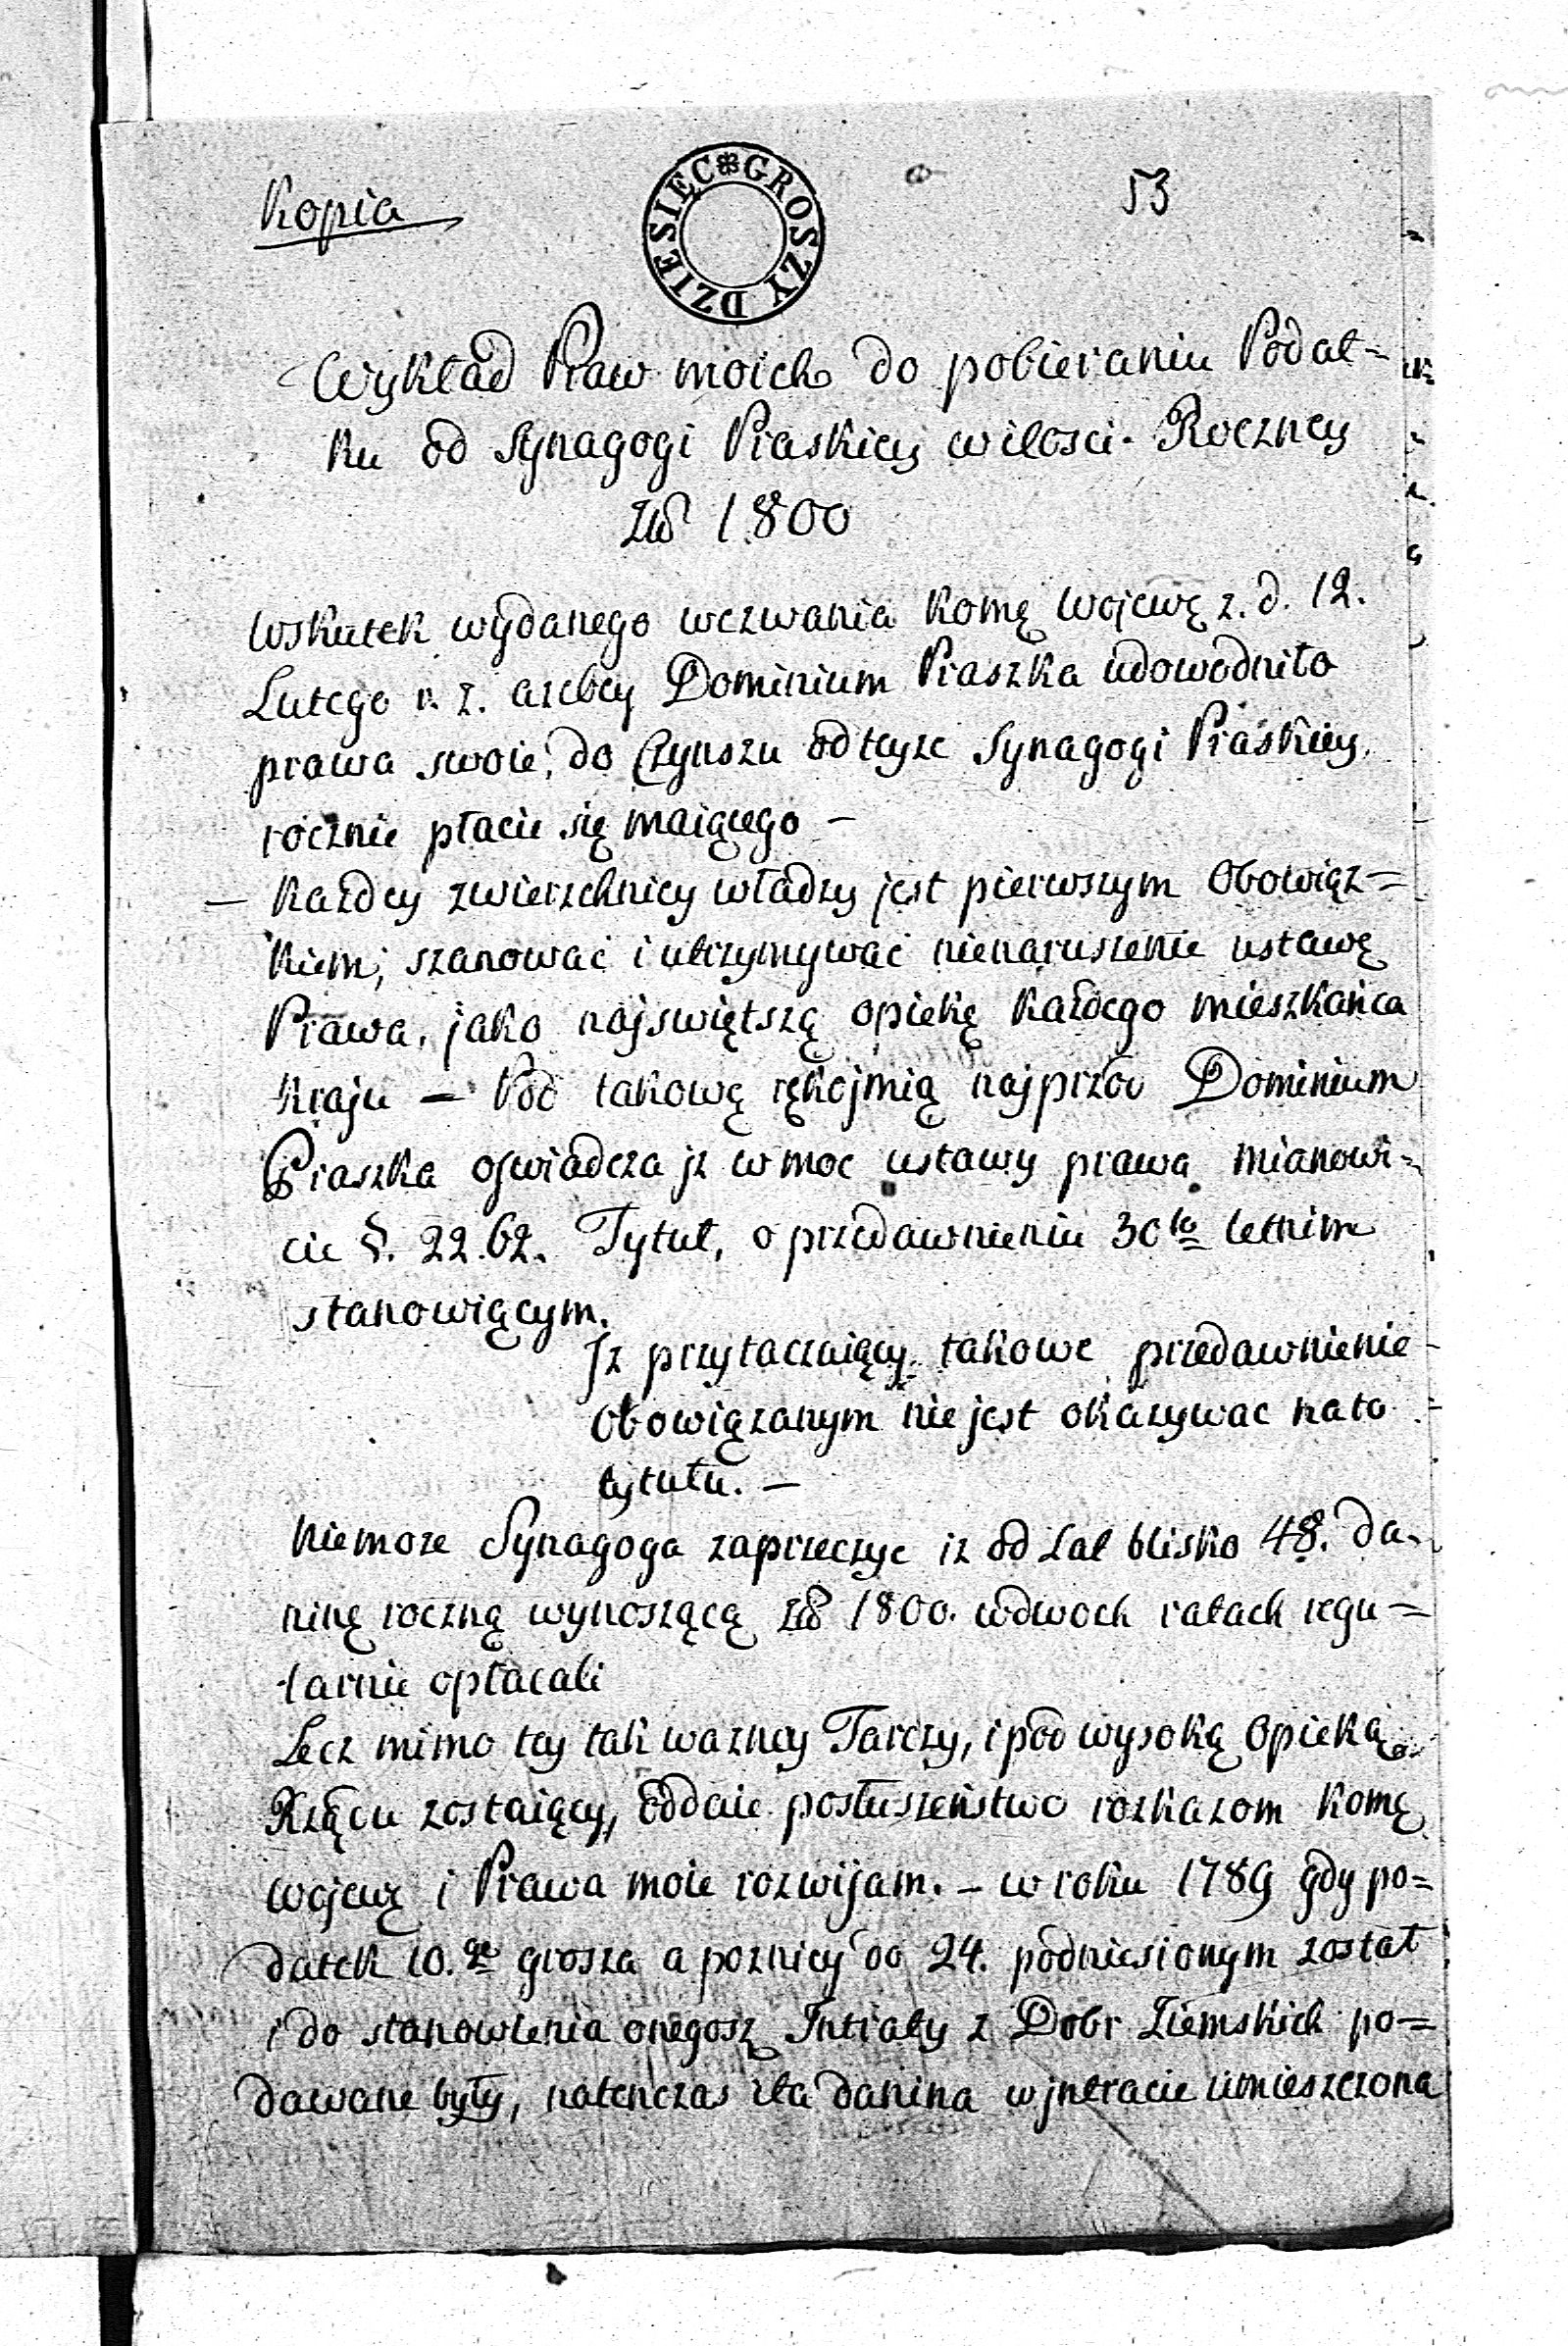 Kopia
DZIESIĘC GROSZY
53
Wykład Praw moich do pobieraniu Podat=
ku od Synagogi Piaskiey wilosci Roczney
Złł 1800
Wskutek wydanego wezwania Komę Wojewę z. d. 12.
Lutego r. z. azeby Dominium Piaszka udowodniło
prawa swoie, do Czynszu od teyze Synagogi Piaskiey
rocznie płacić się maiącego —
— Każdey zwierzchnicy władzy jest pierwszym Obowiąz=
kiem; szanować i utrzymywać nienaruszenie ustawę
Prawa, jako najswiętszą opiekę każdego mieszkańca
kraju — Pod takową rękojmią najprzód Dominium
Piaszka oswiadcza jz w moc ustawy prawa mianowi=
cie §. 22.62. Tytuł, o przedawnieniu 30to letnim
stanowiącym.
Jz przytaczaiący takowe przedawnienie
Obowiązanym nie jest okazywac nato
tytułu. —
Niemoze Synagoga zaprzeczyc iz od Lat blisko 48. da=
ninę roczną wynoszącą złł 1800. wdwoch ratach regu=
larnie opłacali
Lecz mimo tey tak wazney Tarczy, i pod wysoką Opieką
Rządu zostaiący, oddaie posłuszeństwo rozkazom Komę
wojewę i Prawa moie rozwijam. — w roku 1789 gdy po=
datek 10.go grosza a pozniey do 24. podniesionym został
i do stanowlenia onegosz Intraty z Dobr Ziemskich po=
dawane były, natenczas ita danina w jntracie umieszczona